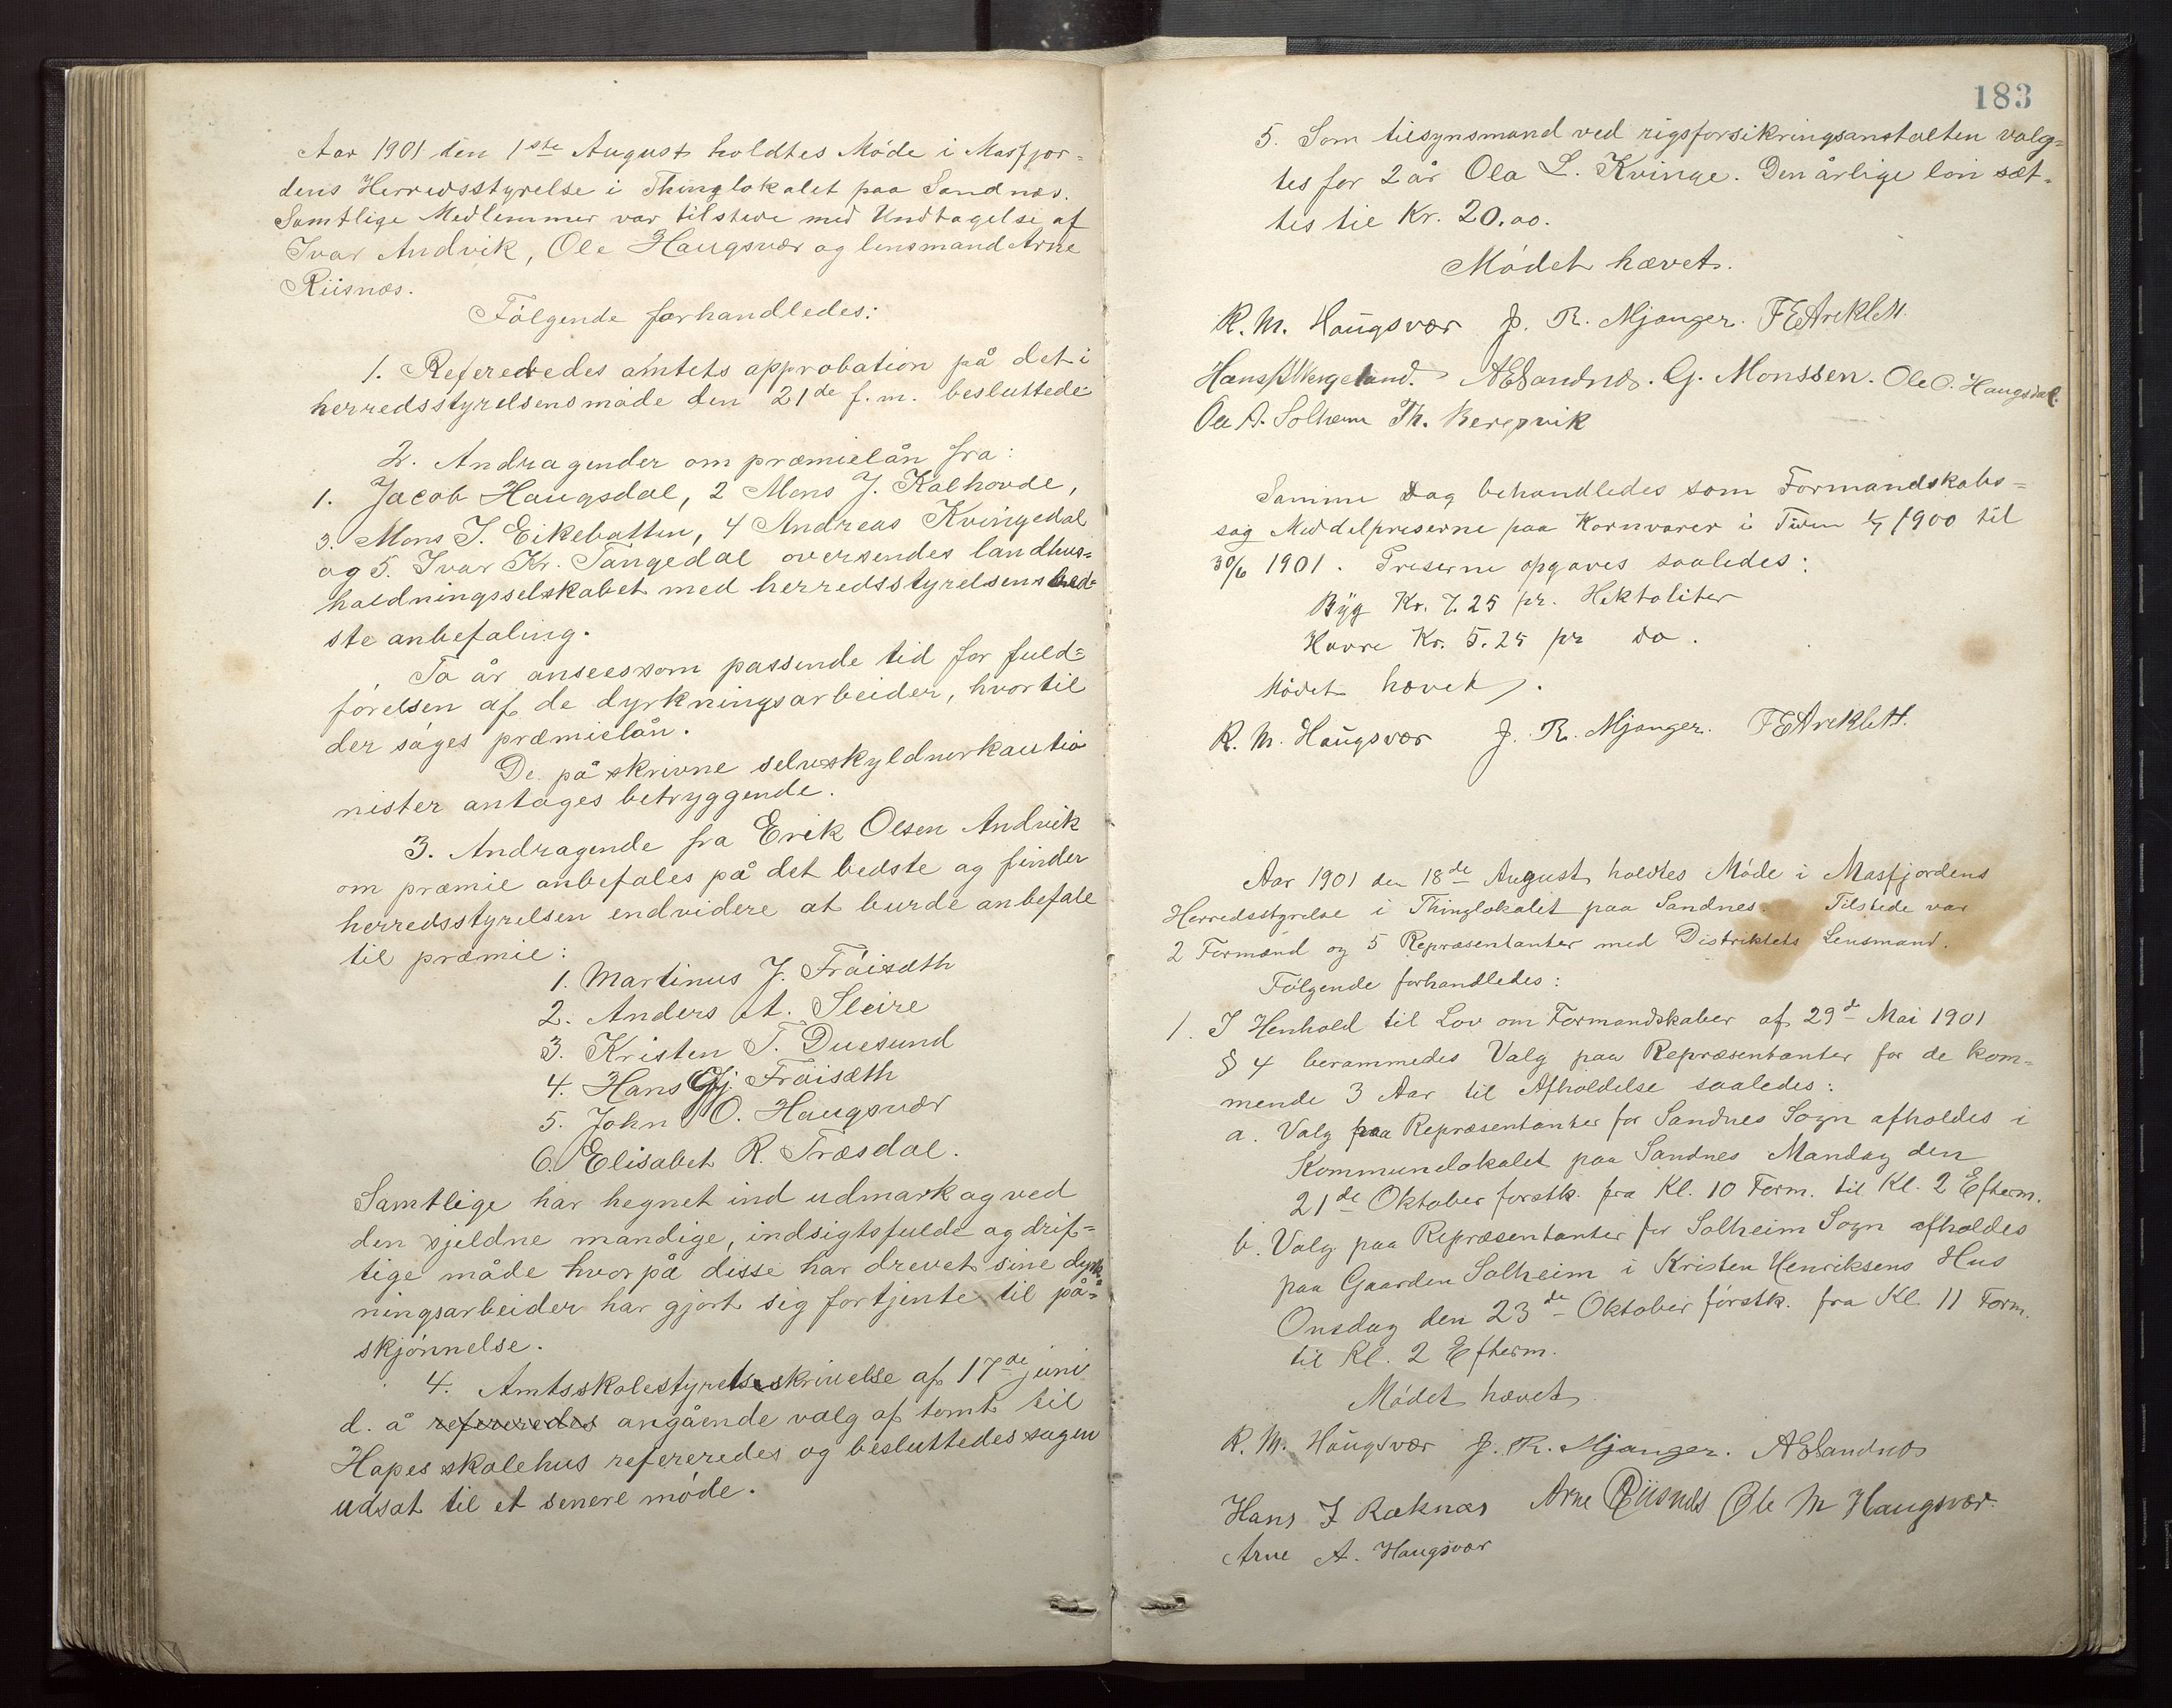 Aar 1901 den 1ste August holdtes Møde i Masfjor=
dens Herredsstyrelse i Thinglokalet paa Sandnæs.
Samtlige Medlemmer var tilstede med Undtagelse af
Ivar Andvik, Ole Haugsvær og lensmand Arne
Riisnæs.
Følgende forhandledes:
1. Refereredes amtets approbation på det i
herredsstyrelsens møde den 21de f. m. besluttede
2. Andragender om præmielån fra:
1. Jacob Haugsdal, 2 Mons J. Kalhovde,
3. Mons J. Eikebotten, 4 Andreas Kvingedal
og 5. Ivar Kr. Tangedal oversendes landhus=
holdningsselskabet med herredsstyrelsens bed=
ste anbefaling.
To år ansees som passende tid for fuld=
førelsen af de dyrkningsarbeider, hvortil
der søges præmielån.
De påskrivne selvskyldnerkautio
nister antages betryggende.
3. Andragende fra Erik Olsen Andvik
om præmie anbefales på det bedste og finder
herredsstyrelsen endvidere at burde anbefale
til præmie:
1. Martinus J. Frøisæth
2. Anders A. Sleire
3. Kristen T. Duesund
4. Hans Gj. Frøisæth
5. John O. Haugsvær
6. Elisabet R. Træsdal.
Samtlige har hegnet ind udmark og ved
den sjeldne mandige, indsigtsfulde og drif=
tige måde hvorpå disse har drevet sine dyrk=
ningsarbeider har gjort sig fortjente til på=
skjønnelse.
4. Amtsskolestyrelsesskrivelse af 17de juni
d. å refereredes angående valg af tomt til
Hopes skolehus refereredes og besluttedes sagen
udsat til et senere møde.
183
5. Som tilsynsmand ved rigsforsikringsanstalten valg=
tes for 2 år Ola L. Kvinge. Den årlige løn sæt=
tes til Kr. 20.00.
Mødet hævet.
R. M. Haugsvær J. R. Mjanger. F E Areklett.
Hans P Vergeland. A E Sandnæs. G. Monssen. Ole O. Haugsdal.
Ole A. Solheim Th. Bergsvik
Samme Dag behandledes som Formandskabs=
sag Middelpriserne paa Kornvarer i Tiden 1/7 1900 til
30/6 1901. Priserne opgaves saaledes:
Byg Kr. 7.25 pr. Hektoliter
Havre Kr. 5.25 pr do.
Mødet hævet.
R. M. Haugsvær J. R. Mjanger. F E Areklett.
Aar 1901 den 18de August holdtes Møde i Masfjordens
Herredsstyrelse i Thinglokalet paa Sandnes. Tilstede var
2 Formænd og 5 Repræsentanter med Distriktets Lensmand.
Følgende forhandledes:
1. I Henhold til Lov om Formandskaber af 29de Mai 1901
§ 4 berammedes Valg paa Repræsentanter for de kom=
mende 3 Aar til Afholdelse saaledes:
a. Valg paa Repræsentanter for Sandnes Sogn afholdes i
Kommunelokalet paa Sandnes Mandag den
21de Oktober førstk. fra Kl. 10 Form. til Kl. 2 Efterm.
b. Valg paa Repræsentanter for Solheim Sogn afholdes
paa Gaarden Solheim i Kristen Henriksens Hus
Onsdag den 23de Oktober førstk. fra Kl. 11 Form.
til Kl. 2 Efterm.
Mødet hævet
R. M. Haugsvær J. R. Mjanger. A E Sandnæs
Hans J Ræknæs Arne Riisnæs Ole M Haugsvær.
Arne A. Haugsvær